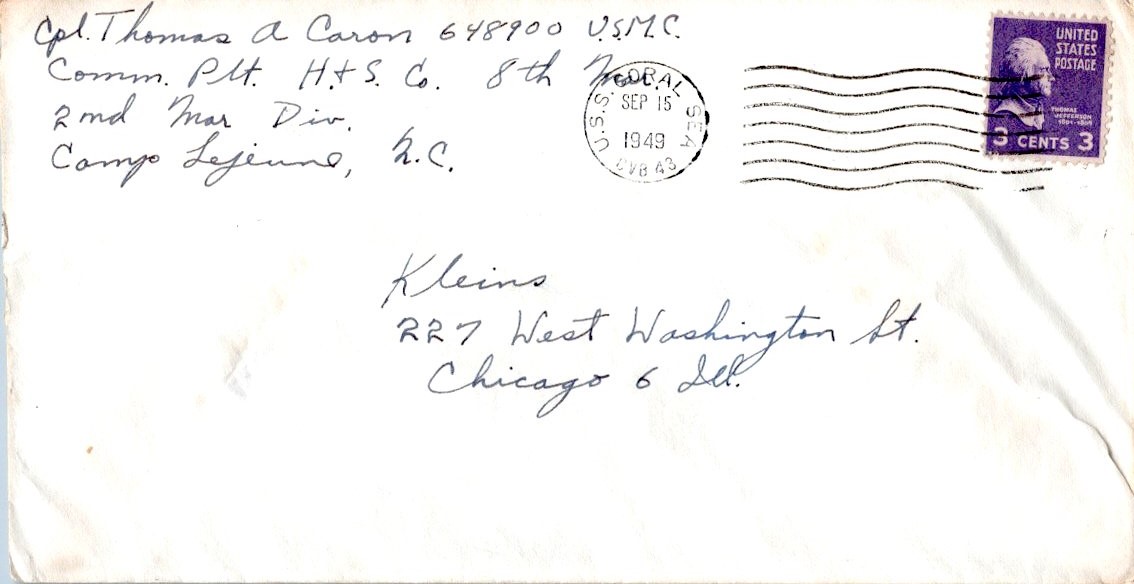 Cpl. Thomas A Caron 648900 U.S.M.C.
Comm. Plt. H+S. Co. 8th Mar.
2nd Mar Div.
Camp Lejeune, N.C.
U.S.S. CORAL SEA
SEP 15
1949
CVB 43
UNITED
STATES
POSTAGE
THOMAS
JEFFERSON
1801-1809
3 CENTS 3
Kleins
227 West Washington St.
Chicago 6 Ill.